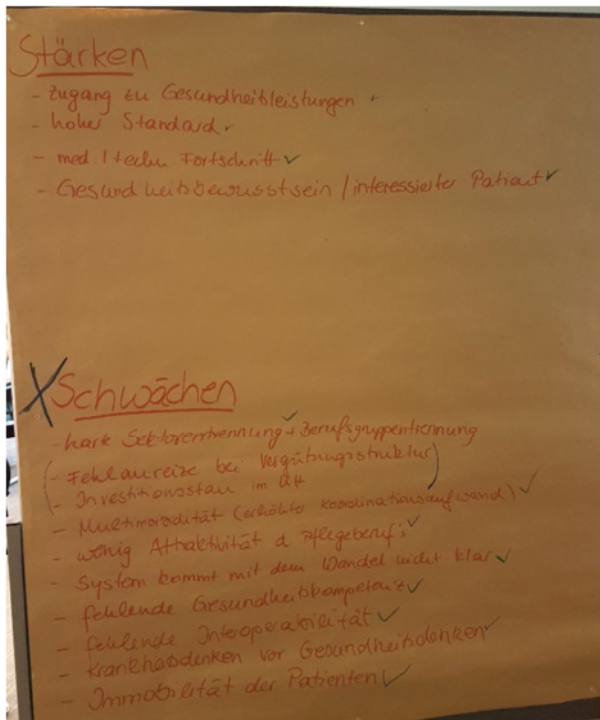 Stärken
- Zugang zu Gesundheitsleistungen ✓
- hoher Standard ✓
- med. / techn. Fortschritt ✓
- Gesundheitsbewusstsein / interessierter Patient ✓
X Schwächen
- harte Sektorentrennung ✓ + Berufsgruppentrennung
(- Fehlanreize bei Vergütungsstruktur)
(- Investitionsstau im KH)
- Multimorbidität (erhöhter Koordinationsaufwand) ✓
- wenig Attraktivität d Pflegeberufs ✓
- System kommt mit dem Wandel nicht klar ✓
- fehlende Gesundheitskompetenz ✓
- fehlende Interoperabilität ✓
- Krankheitsdenken vor Gesundheitsdenken ✓
- Immobilität der Patienten ✓